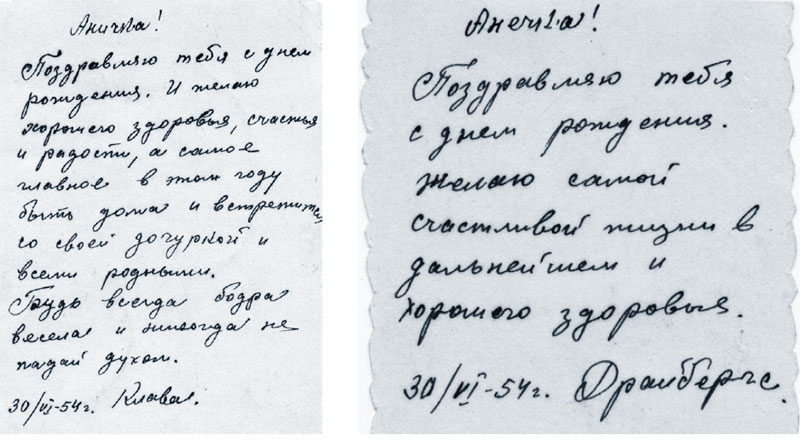 Аничка!
Поздравляю тебя с днем
рождения. И желаю
хорошего здоровья, счастья
и радости, а самое
главное в этом году
быть дома и встретиться
со своей дочуркой и
всеми родными.
Будь всегда бодра
весела и никогда не
падай духом.
30/VI-54г. Клава.
Анечка!
Поздравляю тебя
с днем рождения.
Желаю самой
счастливой жизни в
дальнейшем и
хорошего здоровья.
30/VI-54г. Драйбергс.